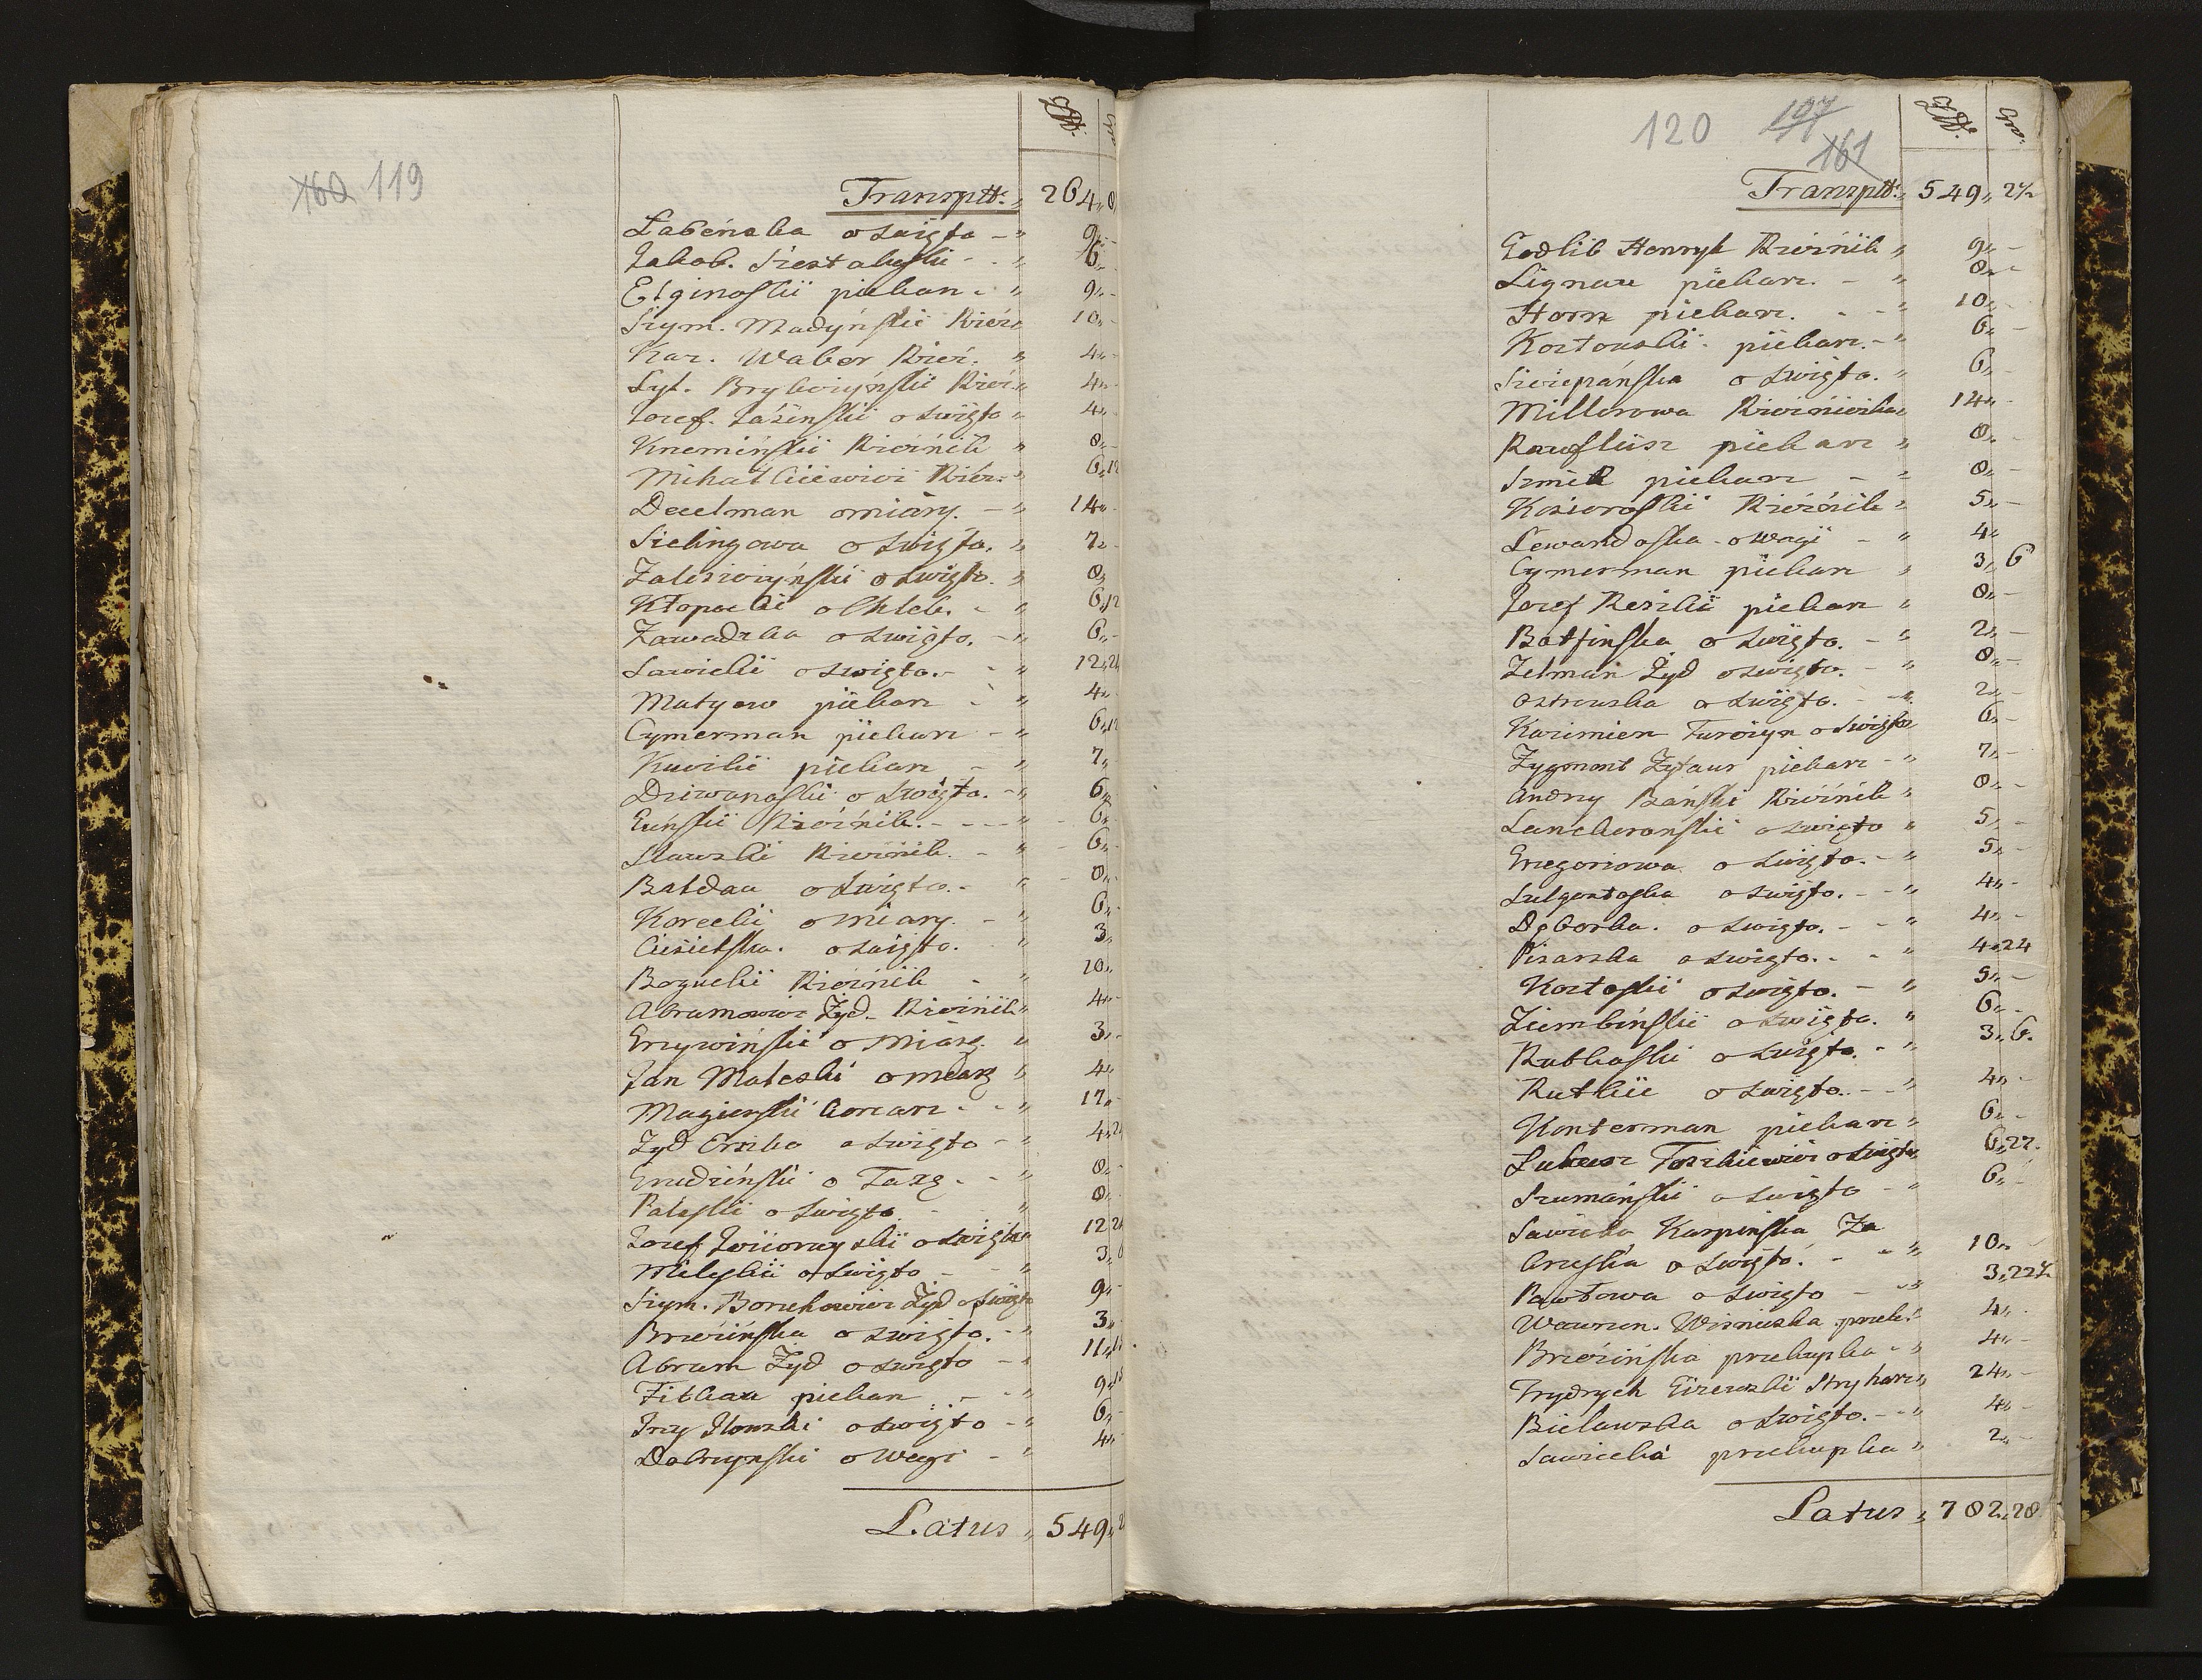 160 119
Zł. Gro
Transptt: 264,, 8
Łabeńska o swięto - 9,, -
Jakob. Szestakoski - - 6,, -
Elginoskii piekarz - 9,, -
Szym. Madyńskii Rzeź 10,, -
Kar. Waber Rzeź. 4,, -
Syl. Brylowżyńskii Rzeź. 4,, -
Jozef. Łazińskii o swięto 4,, -
Krzemińskii Rzeźnik 8,, -
Mihałkiewicz Rzeź. 6,, 12
Decelman o miary. - 14,, -
Sielingowa o swięto. 7,, -
Zaleszczyńskii o swięto. 8,,
Kłopocki o Chleb. - 6,, 12
Zawadzka o swięto. - 6,, -
Sawickii o swięto. - - 12,, 24
Matysow piekarz - 4,, -
Cymerman piekarz - 6,, 12
Kuczkii piekarz - 7,,
Dziwanoskii o swięto. - 6,,
Guńskii Rzeźnik. - - - 6,,
Sławskii Rzeźnik. - 6,, -
Baldau o swięto. - 8,, -
Koreckii o miary. - 6,, -
Cieszielska. o swięto. 3,,
Boguckii Rzeźnik - 10,,
Abramowicz Żyd - Rzeźnik 4,, -
Grzywińskii o Miarę 3,, -
Jan Maleski o miarę 4,,
Magierskii konarz - - 17,, -
Żyd Erszko o swięto - 4,, 24
Grudzińskii o Targ. - - 8,, -
Paleskii o swięto - 8,,
Jozef Jwiorczyskii o swięto 12 24
Mileskii o swięto - - 3,, 6
Szym. Boruchowicz Żyd o swięto 9,, -
Brzezińska o swięto. - 3,,
Abram Żyd o swięto - 11,, 18
Fitkau piekarz - - 9,, 18
Jrzy Jłowski o swięto - 6,, -
Dobrzyński o Wagi - 4,, -
Latus,, 549,, 2
120 107 161
Zł. Gro.
Transptt: 549,, 2½
Godlib Henryk Rzeźnik 9,, -
Lignau piekarz. - 8,, -
Horn piekarz. - - 10,, -
Kortouskii piekarz. - 6,, -
Szczepańska o swięto. 6,, -
Millerowa Rzeźniczka 14,, -
Rawflisz piekarz 8,, -
Szmit piekarz - 8,, -
Kosioroskii Rzeźnik 5,, -
Lewandoska - o wagi - 4,,
Cymerman piekarz 3,, 6
Jozef Reszkii piekarz 8,, -
Batfińska o swięto. - 2,, -
Zelman Żyd o swięto. - 8,, -
Ostrouska o swięto. - 2,, -
Kazimierz Turczyn o swięto 6,, -
Zygmont Zytaur piekarz - 7,, -
Andrzy Bański Rzeźnik 8,, -
Lanckoronskii o swięto 5,, -
Grzegorzowa o swięto. - 5,, -
Sulgostoska o swięto. - - 4,, -
Dęborka. o swięto. - - 4,, -
Pisarska o swięto. - - 4,, 24
Kortoskii o swięto. - 5,, -
Ziembińskii o swięto. 6,, -
Rutkoskii o swięto. - 3,, 6.
Rutkii o swięto. - - 4,, -
Konterman piekarz 6,, -
Łukasz Toszkiewicz o swięto 6,, 27.
Szumańskii o swięto - 6,, -
Sawicka Karpińska Za
Gruska o swięto. - - 10,, -
Pawłowa o swięto - 3,, 22½
Wawrzen. Wisnieska przek. 4,, -
Brzezińska przekupka - 4,, -
Frydrych Gizeuskii Stryharz 24,, -
Bielawska o swięto. - - 4,, -
Sawicka przekupka 2,, -
Latus,, 782,, 28